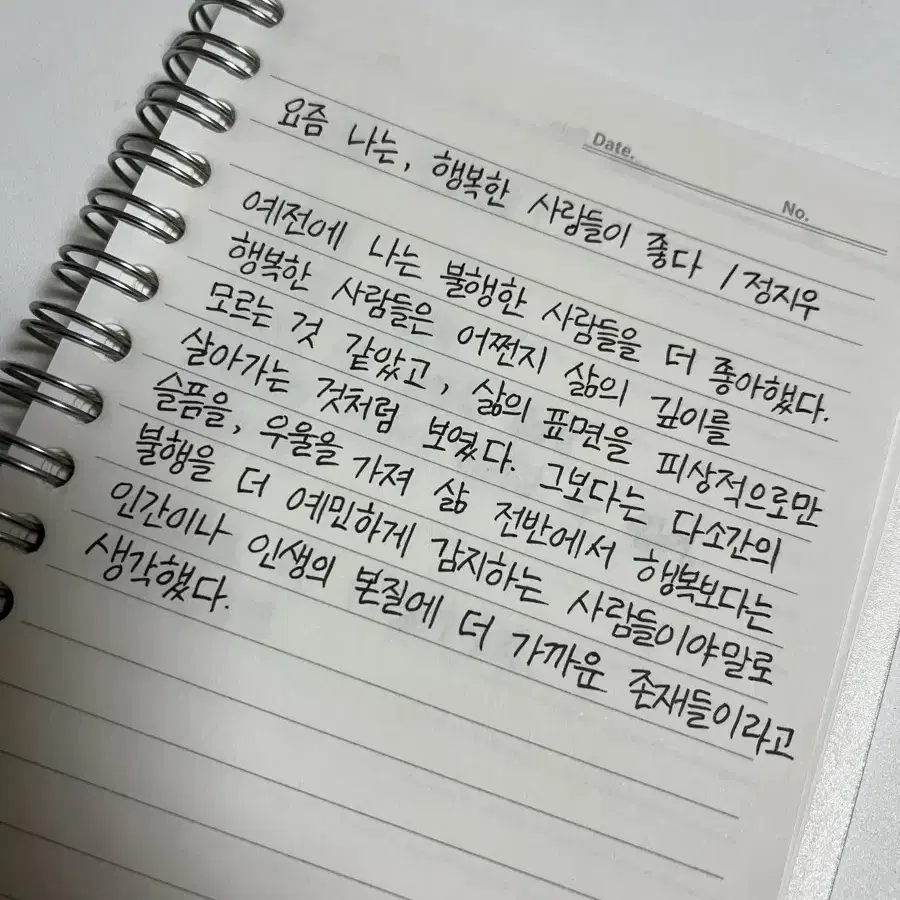 Date.
No.
요즘 나는, 행복한 사람들이 좋다 / 정지우
예전에 나는 불행한 사람들을 더 좋아했다.
행복한 사람들은 어쩐지 삶의 깊이를
모르는 것 같았고, 삶의 표면을 피상적으로만
살아가는 것처럼 보였다. 그보다는 다소간의
슬픔을, 우울을 가져 삶 전반에서 행복보다는
불행을 더 예민하게 감지하는 사람들이야말로
인간이나 인생의 본질에 더 가까운 존재들이라고
생각했다.